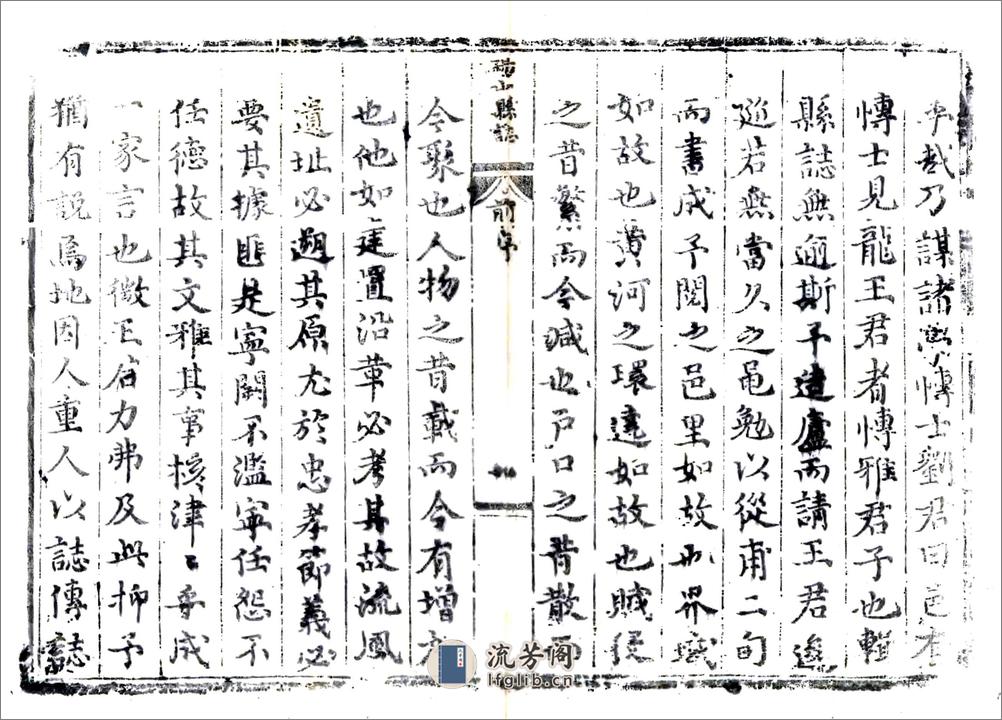 平哉乃謀諸學博士劉君曰邑本
博士見龍王君者博雅君子也輯
縣誌無逾斯予造廬而請王君逡
廵若無當久之黽勉以從甫二旬
而書成予閱之邑里如故也界域
如故也黃河之環遶如故也賦役
之昔繁而今減也戶口之昔散而
碭山縣誌
前序
今聚也人物之昔載而今有增也
也他如建置沿革必考其故流風
遺址必遡其原尤於忠孝節義必
要其據匪是寧闕不濫寧任怨不
任德故其文雅其事核津〻乎成
一家言也微王君力弗及此抑予
猶有說焉地因人重人以誌傳誌
流芳阁
lfglib.cn